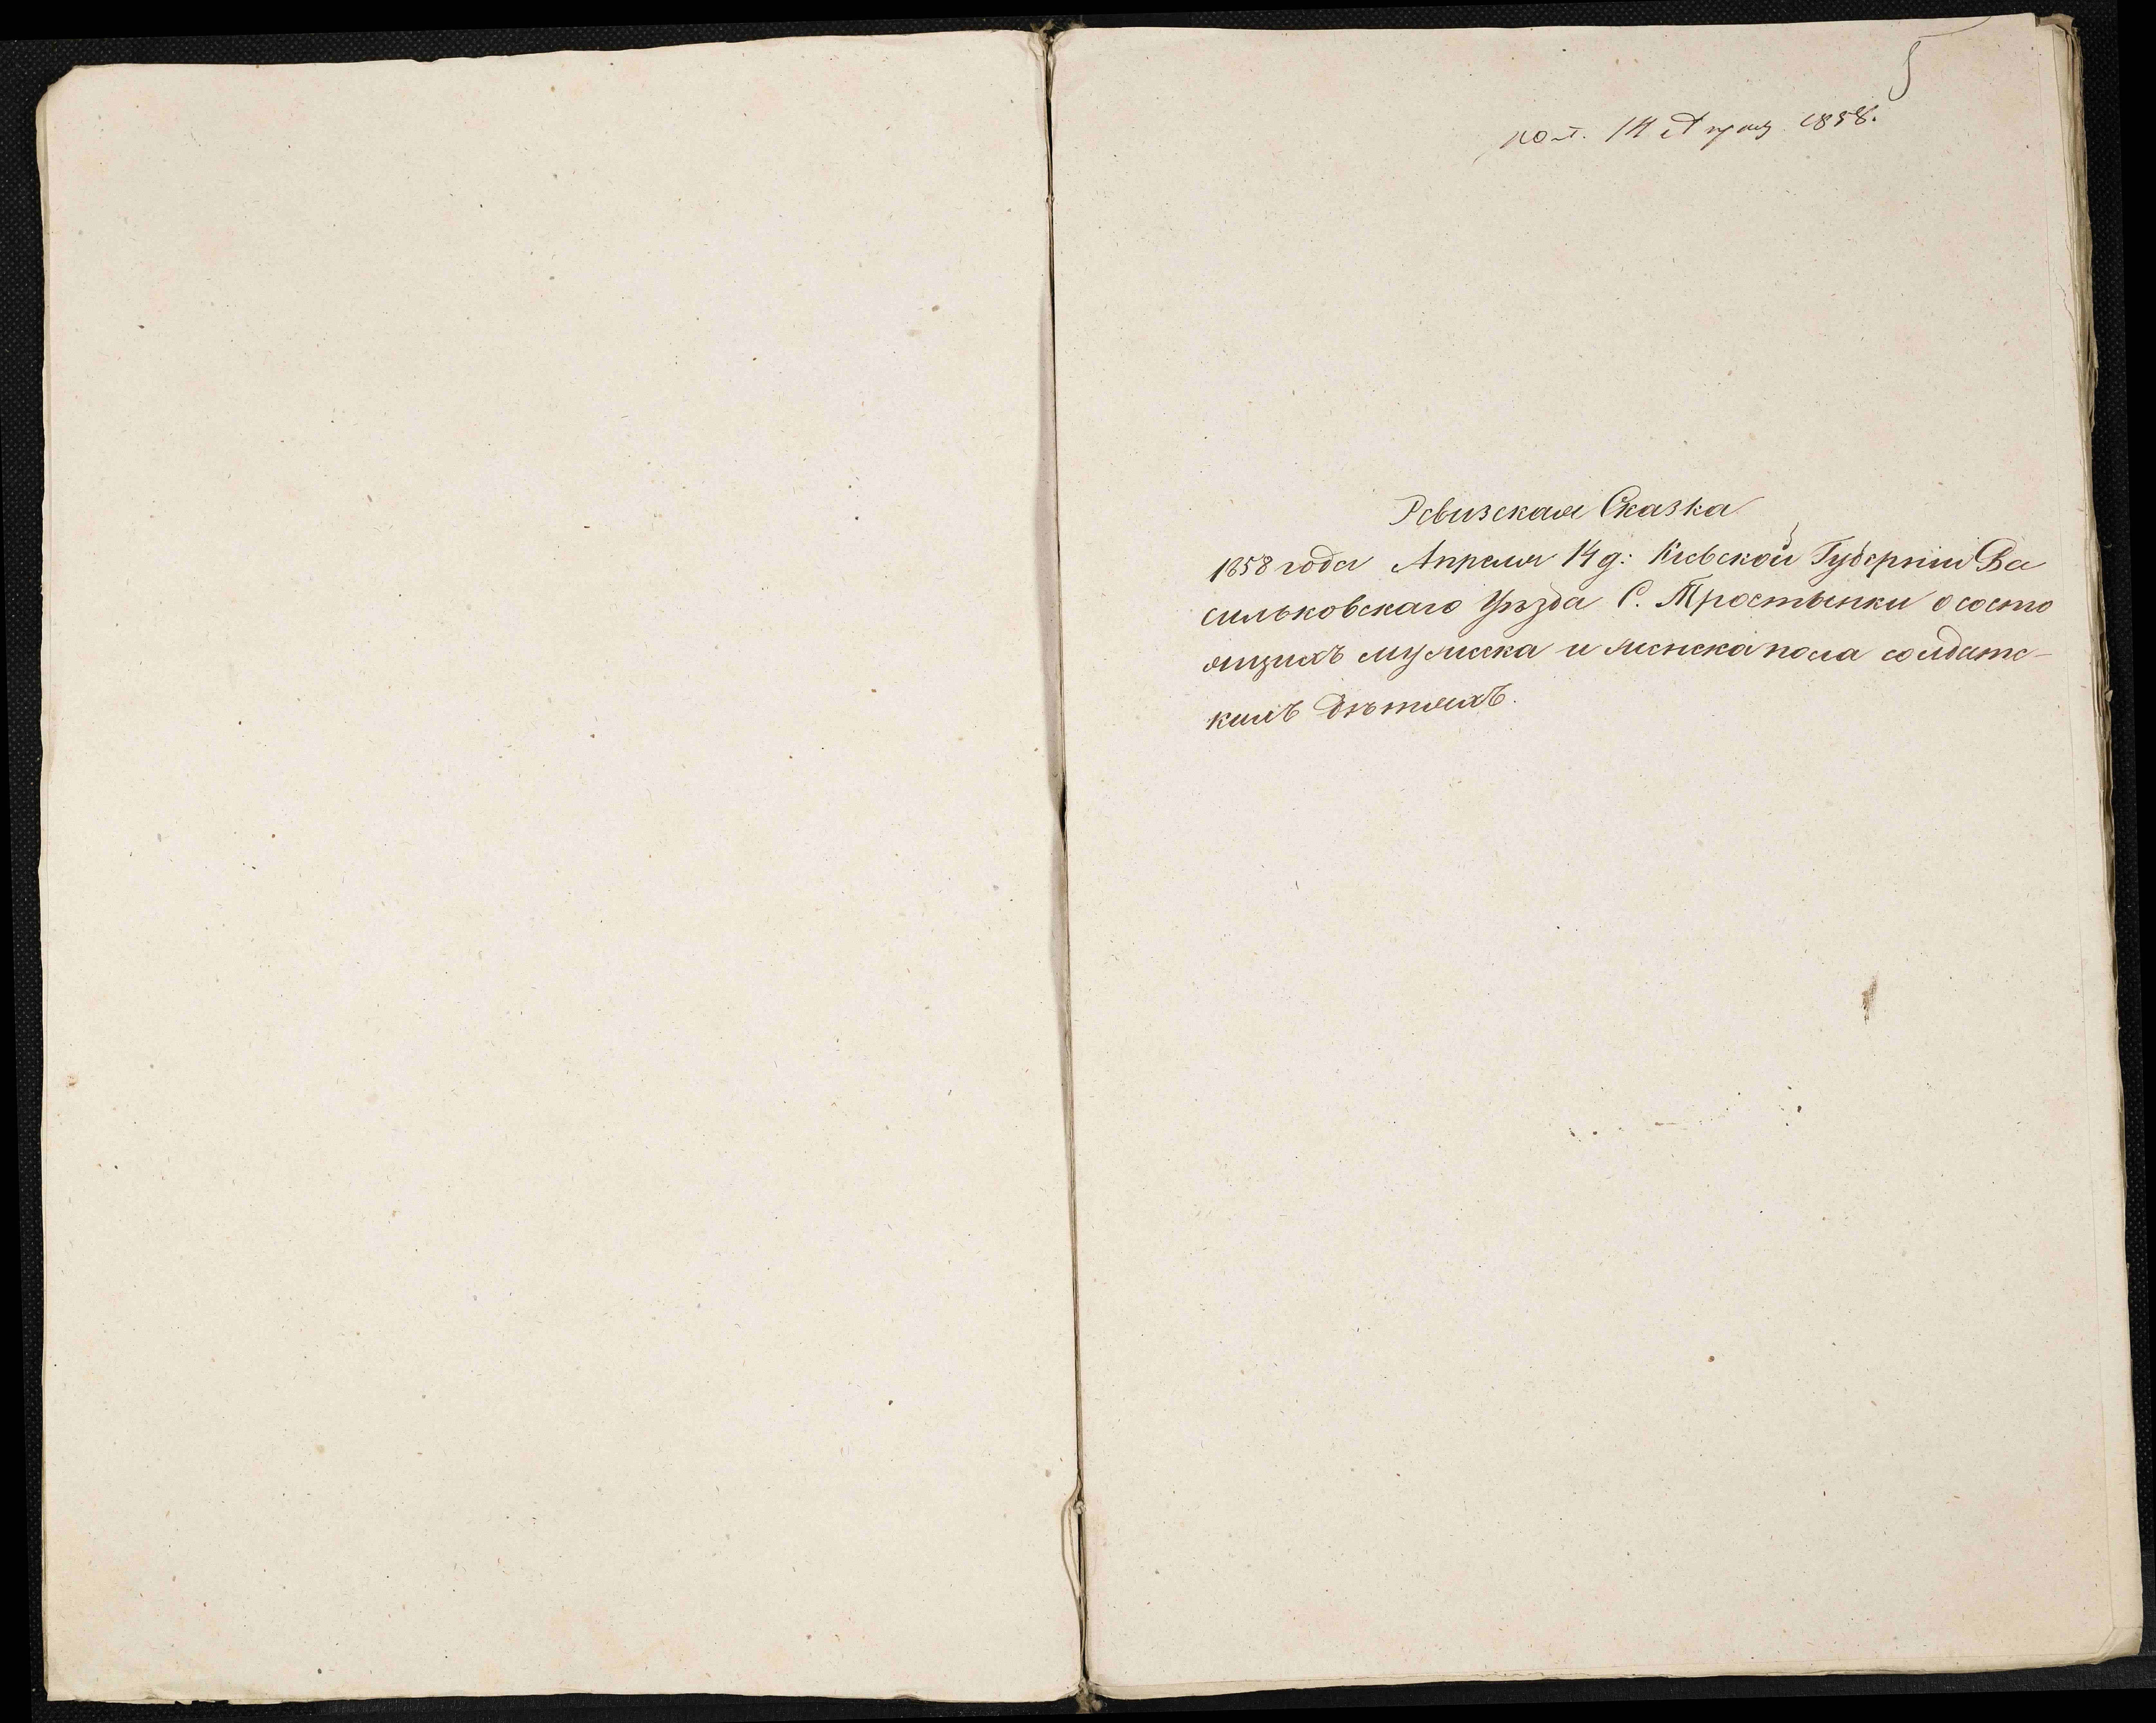 5
пол. 14 Апрѣл 1858.
Ревизская Сказка
1858 года Апреля 14 д: Кіевской Губерніи Ва
сильковскаго Уѣзда С. Тростынки о состо
ящихъ мужеска и женска пола солдатс-
кихъ дѣтяхъ.